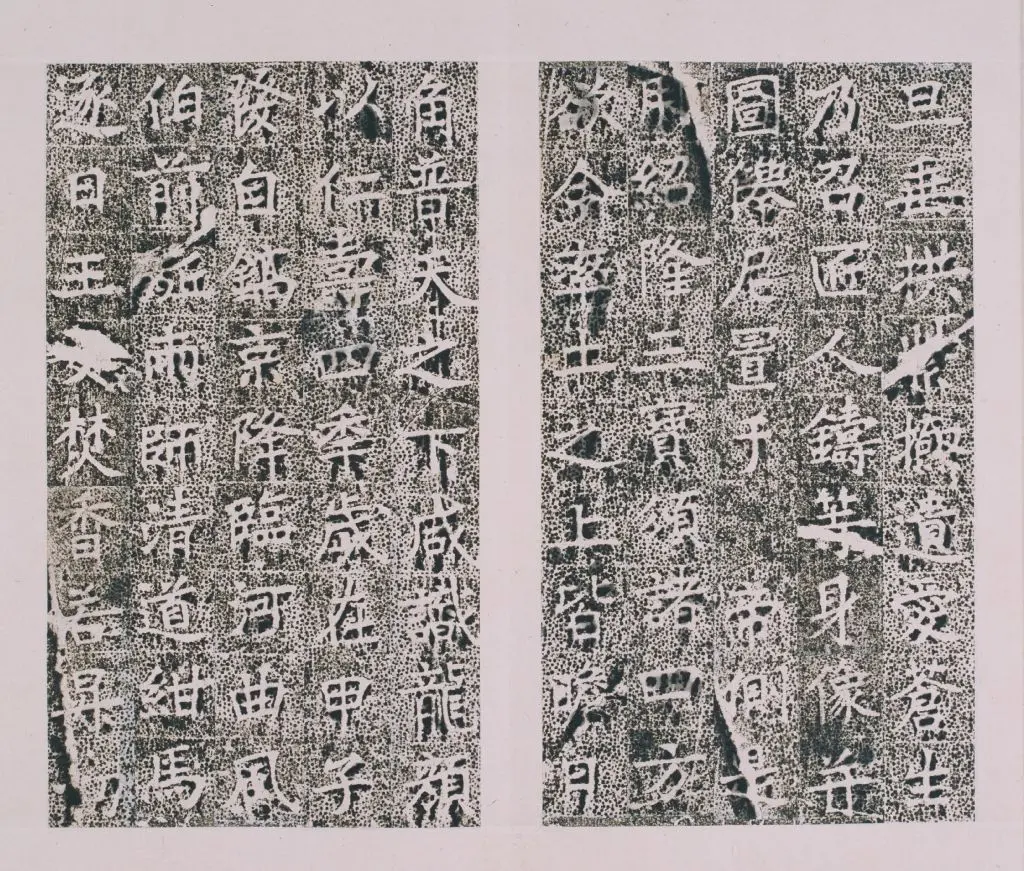 旦垂拱紫極遺愛蒼生
乃召匠人鑄等身像并
圖僊尼置于　帝側是
用紹隆三寶頒諸四方
欲令率土之上皆瞻日
角普天之下咸識龍顏
以仁壽四年歲在甲子
發自鎬京降臨河曲風
伯前驅雨師清道紺馬
逐日玉女焚香若昇忉